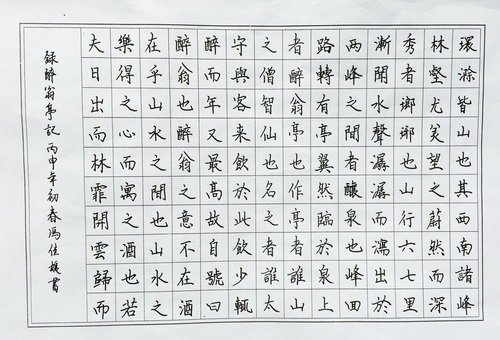 環滁皆山也其西南諸峰
林壑尤美望之蔚然而深
秀者瑯琊也山行六七里
漸聞水聲潺潺而瀉出於
兩峰之間者釀泉也峰回
路轉有亭翼然臨於泉上
者醉翁亭也作亭者誰山
之僧智仙也名之者誰太
守與客来飲於此飲少輒
醉而年又最高故自號曰
醉翁也醉翁之意不在酒
在乎山水之間也山水之
樂得之心而寓之酒也若
夫日出而林霏開雲歸而
錄醉翁亭記丙申年初春馮佳書